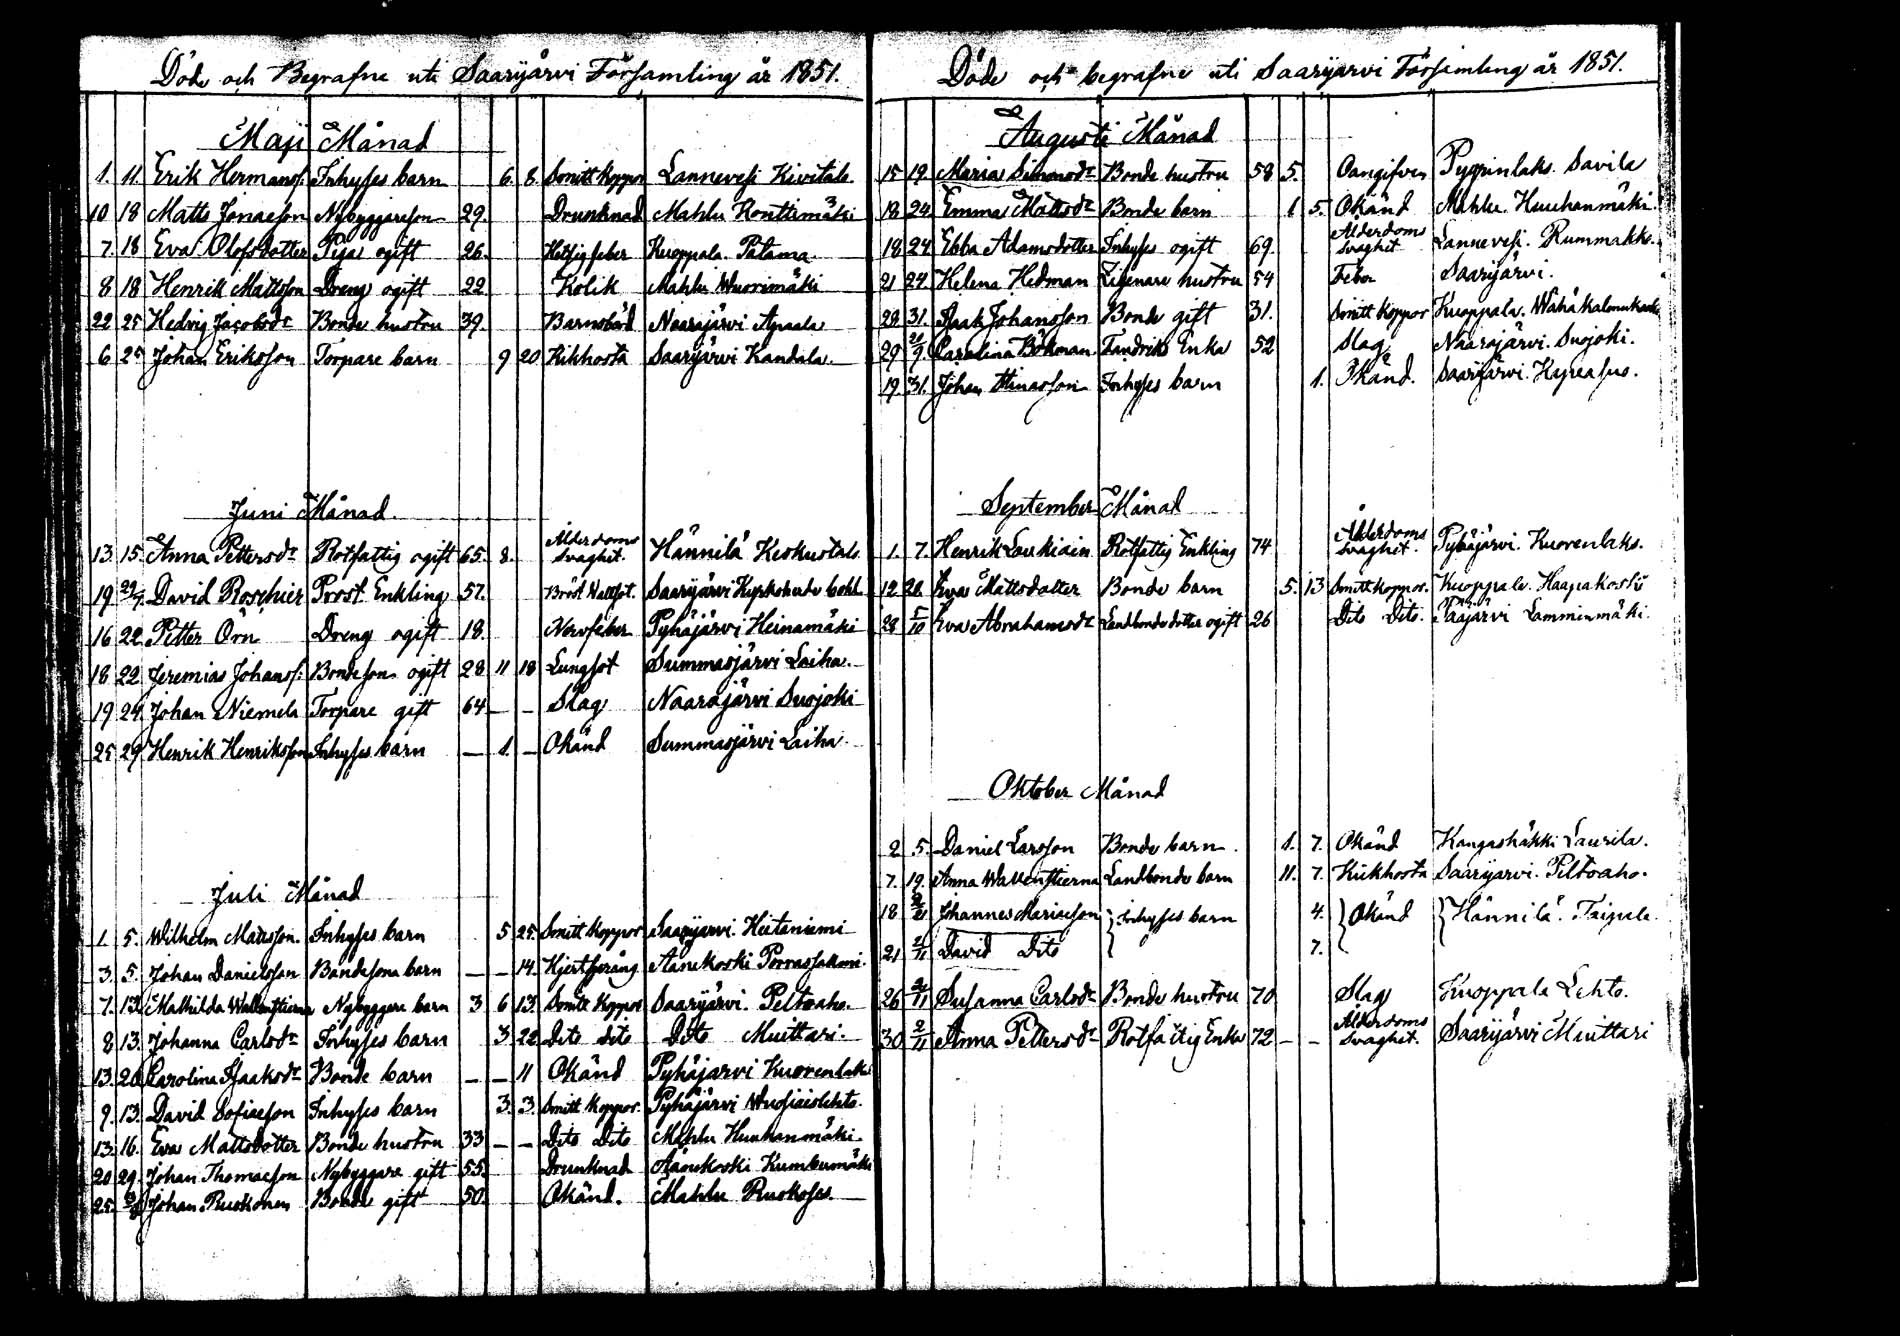 Döde och Begrafne uti Saarijärvi Församling år 1851.
Maji Månad
1. 11. Erik Hermanss: Inhyses barn 6. 8. Smitt koppor Lannevesi Kivitalo.
10 18 Matts Jonaeson Nybyggareson 29. Drunknad Mahlu Konttimäki
7. 18 Eva Olofsdotter Piga ogift 26. Hetsigfeber Kuoppala. Palama.
8 18 Henrik Mattsson Dreng ogift 22 Kolik Mahlu Wuorimäki
22 25 Hedvig Jacobsdr Bonde hustru 39. Barnsbörd Naarajärvi
6 25 Johan Eriksson Torpare barn 9 20 Kikhosta Saarijärvi Kandala.
Juni Månad.
13. 15. Anna Pettersdr Rotfattig ogift 65. 8. Ålderdoms svaghet. Hännilä Keskustalo
19 22/7. David Roschier Prost Enkling 57. Bröst Wattsot. Saarijärvi
16 22 Petter Örn Dreng ogift 18. Nervfeber Pyhäjärvi Heinamäki
18 22 Jeremias Johanss: Bondeson ogift 28 11 18 Lungsot Summasjärvi Laiha.
19 24. Johan Niemela Torpare gift 64 – – Slag Naarajärvi Suojoki
25 29 Henrik Henriksson Inhyses barn – 1. – Okänd Summasjärvi Laiha.
Juli Månad
1. 5. Wilhelm Mattsson. Inhyses barn 5 25. Smitt koppor Saarijärvi. Hietaniemi
3. 5. Johan Danielsson Bondesona barn – – 14. Hjertsprång Äänekoski Porrassalmi.
7. 13. Mathilda Wallenstierna Nybyggare barn 3 6 13. Smitt koppor Saarijärvi. Peltoaho.
8 13. Johanna Carlsdr Inhyses barn 3. 22. Dito dito Dito Muittari.
13. 20. Carolina Isaaksdr Bonde barn – – 11 Okänd Pyhäjarvi Kuorenlaks
9. 13. David Sofiaeson Inhyses barn 3. 3. Smitt koppor. Pyhäjärvi
13. 16. Eva Mattsdotter Bonde hustru 33 – – Dito Dito Mahlu Huuhanmäki.
20 29. Johan Thomaeson Nybyggare gift 55. Drunknad Äänekoski Kumbumäki
25. Johan Ruokonen Bonde gift 50. Okänd. Mahlu
Döde och begrafne uti Saarijarvi Församling år 1851.
Augusti Månad
15 19. Maria Simonsdr Bonde hustru 58 5. Oangifven Pyypinlaks. Savila
18 24 Emma Mattsdr Bonde barn 1 5. Okänd Mahlu. Huuhanmäki.
18 24 Ebba Adamsdotter Inhyses ogift 69. Ålderdoms svaghet Lannevesi. Rummakko.
21 24. Helena Hedman Zigenare hustru 54 Feber Saarijärvi.
28 31. Isaak Johansson Bonde gift 31. Smitt koppor Kuoppala.
29 Carolina Bökman Fändriks Enka 52 Slag Naarajärvi. Suojoki.
19. 31. Johan Inhyses barn 1. Okänd. Saarijärvi.
September Månad
1. 7. Henrik Loukiain Rotfattig Enkling 74 Ålderdoms svaghet. Pyhäjärvi. Kuorenlaks.
12 20. Eva Mattsdotter Bonde barn 5. 13 Smitt koppor. Kuoppala. Haapakoski
28 5/10 Eva Abrahamsdr Landbonde dotter ogift 26 Dito Dito. Pääjärvi Lamminmäki.
Oktober Månad
2 5. Daniel Larsson Bonde barn. 1. 7. Okänd Kangashäkki Laurila.
7. 19. Anna Wallenstierna Landbonde barn 11. 7. Kikhosta Saarijarvi. Peltoaho.
18 Johannes Mariaeson Inhyses barn 4. Okänd Hännilä. Taipale.
21 2/11 David Dito 7.
26 2/11 Susanna Carlsdr Bonde hustru 70 Slag Kuoppala Lehto.
30 2/11 Anna Pettersdr Rotfattig Enka 72 – – Ålderdoms svaghet. Saarijärvi Muittari